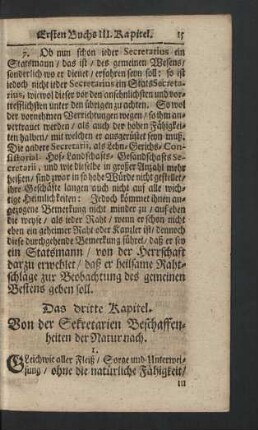 Ersten Buchs III. Kapitel. 15
7. Ob nun schon ieder Secretarius ein
Statsmann / das ist / des gemeinen Wesens /
sonderlich wo er dienet / erfahren seyn soll: so ist
iedoch nicht ieder Secretarius ein Stats Secreta-
rius, wiewol dieser vor den ansehnlichsten und vor-
trefflichsten unter den übrigen zu achten. So wol
der vornehmen Verrichtungen wegen / so ihm an-
vertrauet werden / als auch der hohen Fähigkei-
ten halben / mit welchen er ausgerüstet seyn muß.
Die andere Secretarii, als Lehn- Gerichts- Con-
sistorial- Hof- Landschafts- Gesandschafts Se-
cretarii, und wie dieselbe in großer Anzahl mehr
heißen / sind zwar in so hohe Würde nicht gestellet /
ihre Geschäfte langen auch nicht auf alle wich-
tige Heimlichkeiten: Jedoch kommet ihnen an-
gezogene Bemerkung nicht minder zu / auf eben
die weyse / als ieder Raht / wenn er schon nicht
eben ein geheimer Raht oder Kanzler ist / dennoch
diese durchgehende Bemerkung führet / daß er sey
ein Statsmann / von der Herrschaft
darzu erwehlet / daß er heilsame Raht-
schläge zur Beobachtung des gemeinen
Bestens geben soll.
Das dritte Kapitel.
Von der Sekretarien Beschaffen-
heiten der Natur nach.
1.
Gleichwie aller Fleiß / Sorge und Unterwei-
sung / ohne die natürliche Fähigkeit /
in